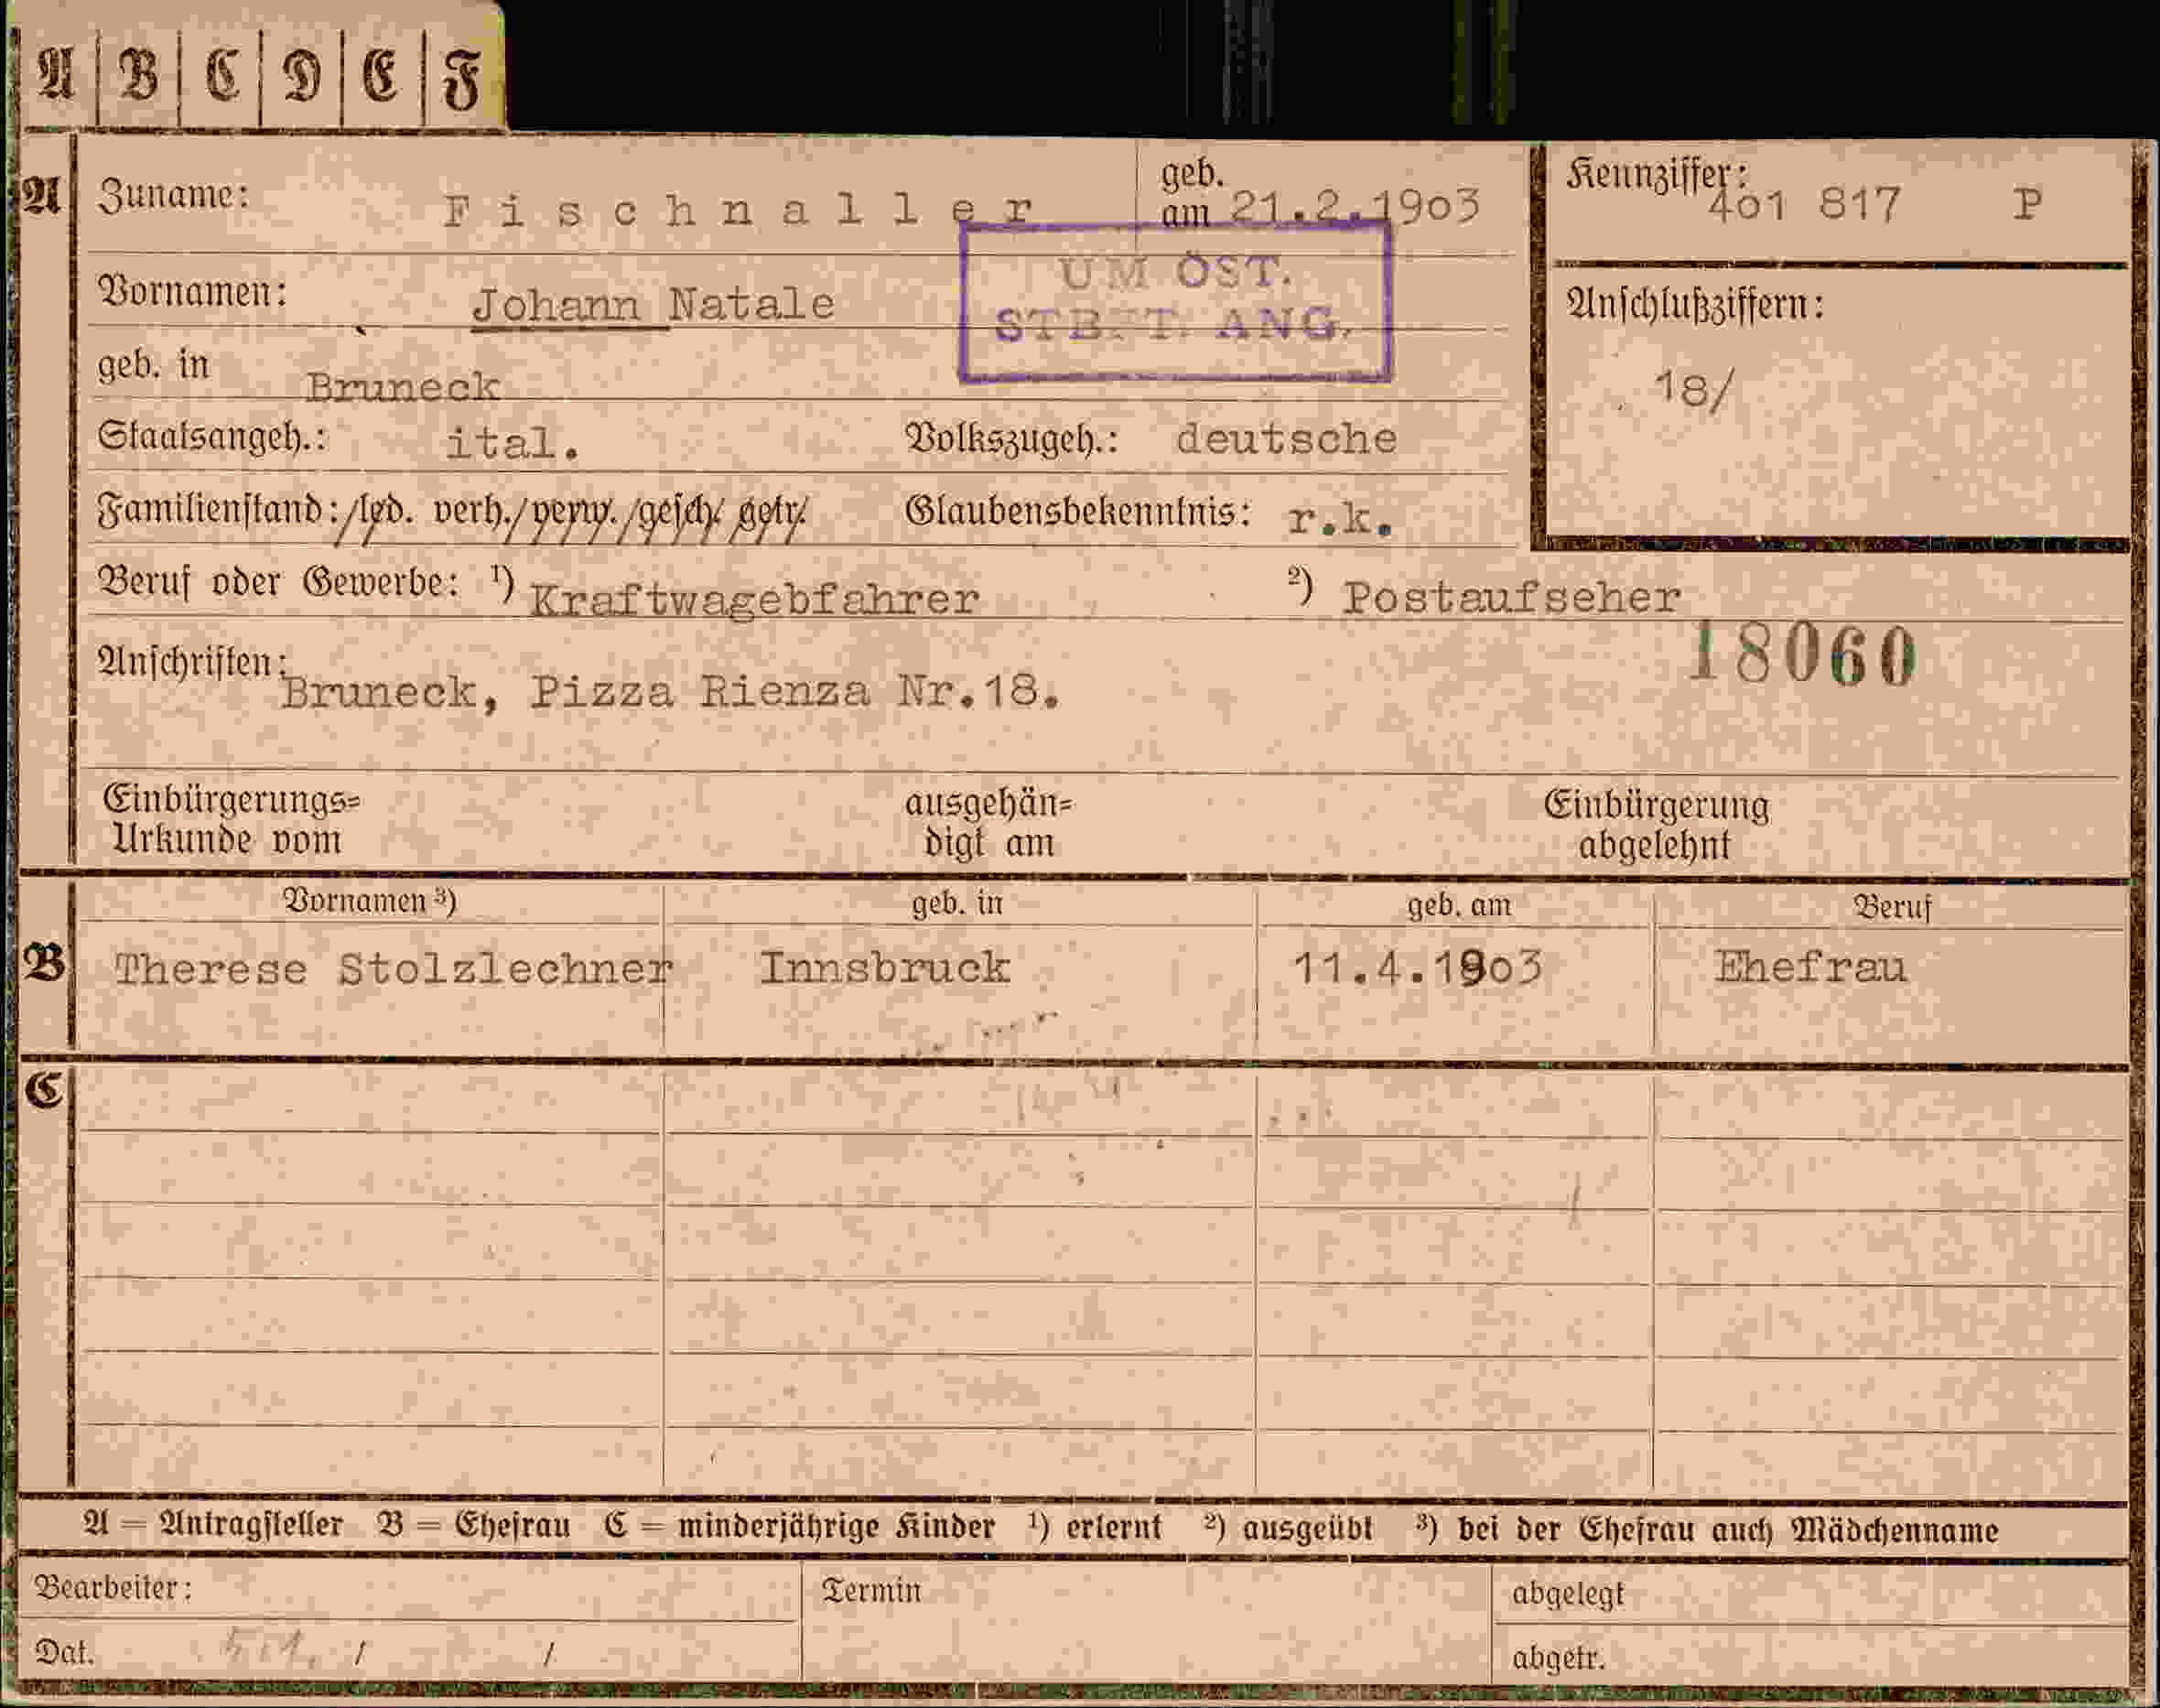 A B C D E F
A Zuname: Fischnaller geb. am 21.2.1903 Kennziffer: 401 817 P
UM ÖST.
Vornamen: Johann Natale STBÜT. ANG. Anschlußziffern:
geb. in Bruneck 18/
Staatsangeh.: ital. Volkszugeh.: deutsche
Familienstand: led. verh./verw./gesch/ getr. Glaubensbekenntnis: r.k.
Beruf oder Gewerbe: 1) Kraftwagebfahrer 2) Postaufseher
18060
Anschriften: Bruneck, Pizza Rienza Nr.18.
Einbürgerungs= ausgehän= Einbürgerung
Urkunde vom digt am abgelehnt
Vornamen 3) geb. in geb. am Beruf
B Therese Stolzlechner Innsbruck 11.4.1903 Ehefrau
C
A = Antragsteller B = Ehefrau C = minderjährige Kinder 1) erlernt 2) ausgeübt 3) bei der Ehefrau auch Mädchenname
Bearbeiter: Termin abgelegt
Dat. / / abgetr.